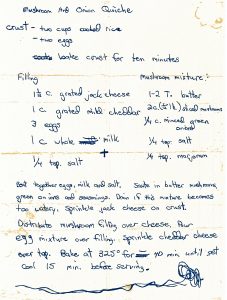 Mushroom And Onion Quiche
crust - two cups cooked rice
- two eggs
bake crust for ten minutes
Filling
1½ c. grated jack cheese
1 c. grated mild cheddar
3 eggs
1 c. whole milk
¼ tsp. salt
+
mushroom mixture:
1-2 T. butter
2c. (½ lb) sliced mushrooms
¼ c. minced green onions
¼ tsp. salt
¼ tsp. marjoram
Beat together eggs, milk and salt. Saute in butter mushrooms,
green onions and seasonings. Drain if this mixture becomes
too watery. Sprinkle jack cheese on crust.
Distribute mushroom filling over cheese. Pour
egg mixture over filling. Sprinkle cheddar cheese
over top. Bake at 325° for 40 min until set
Cool 15 min. before serving.